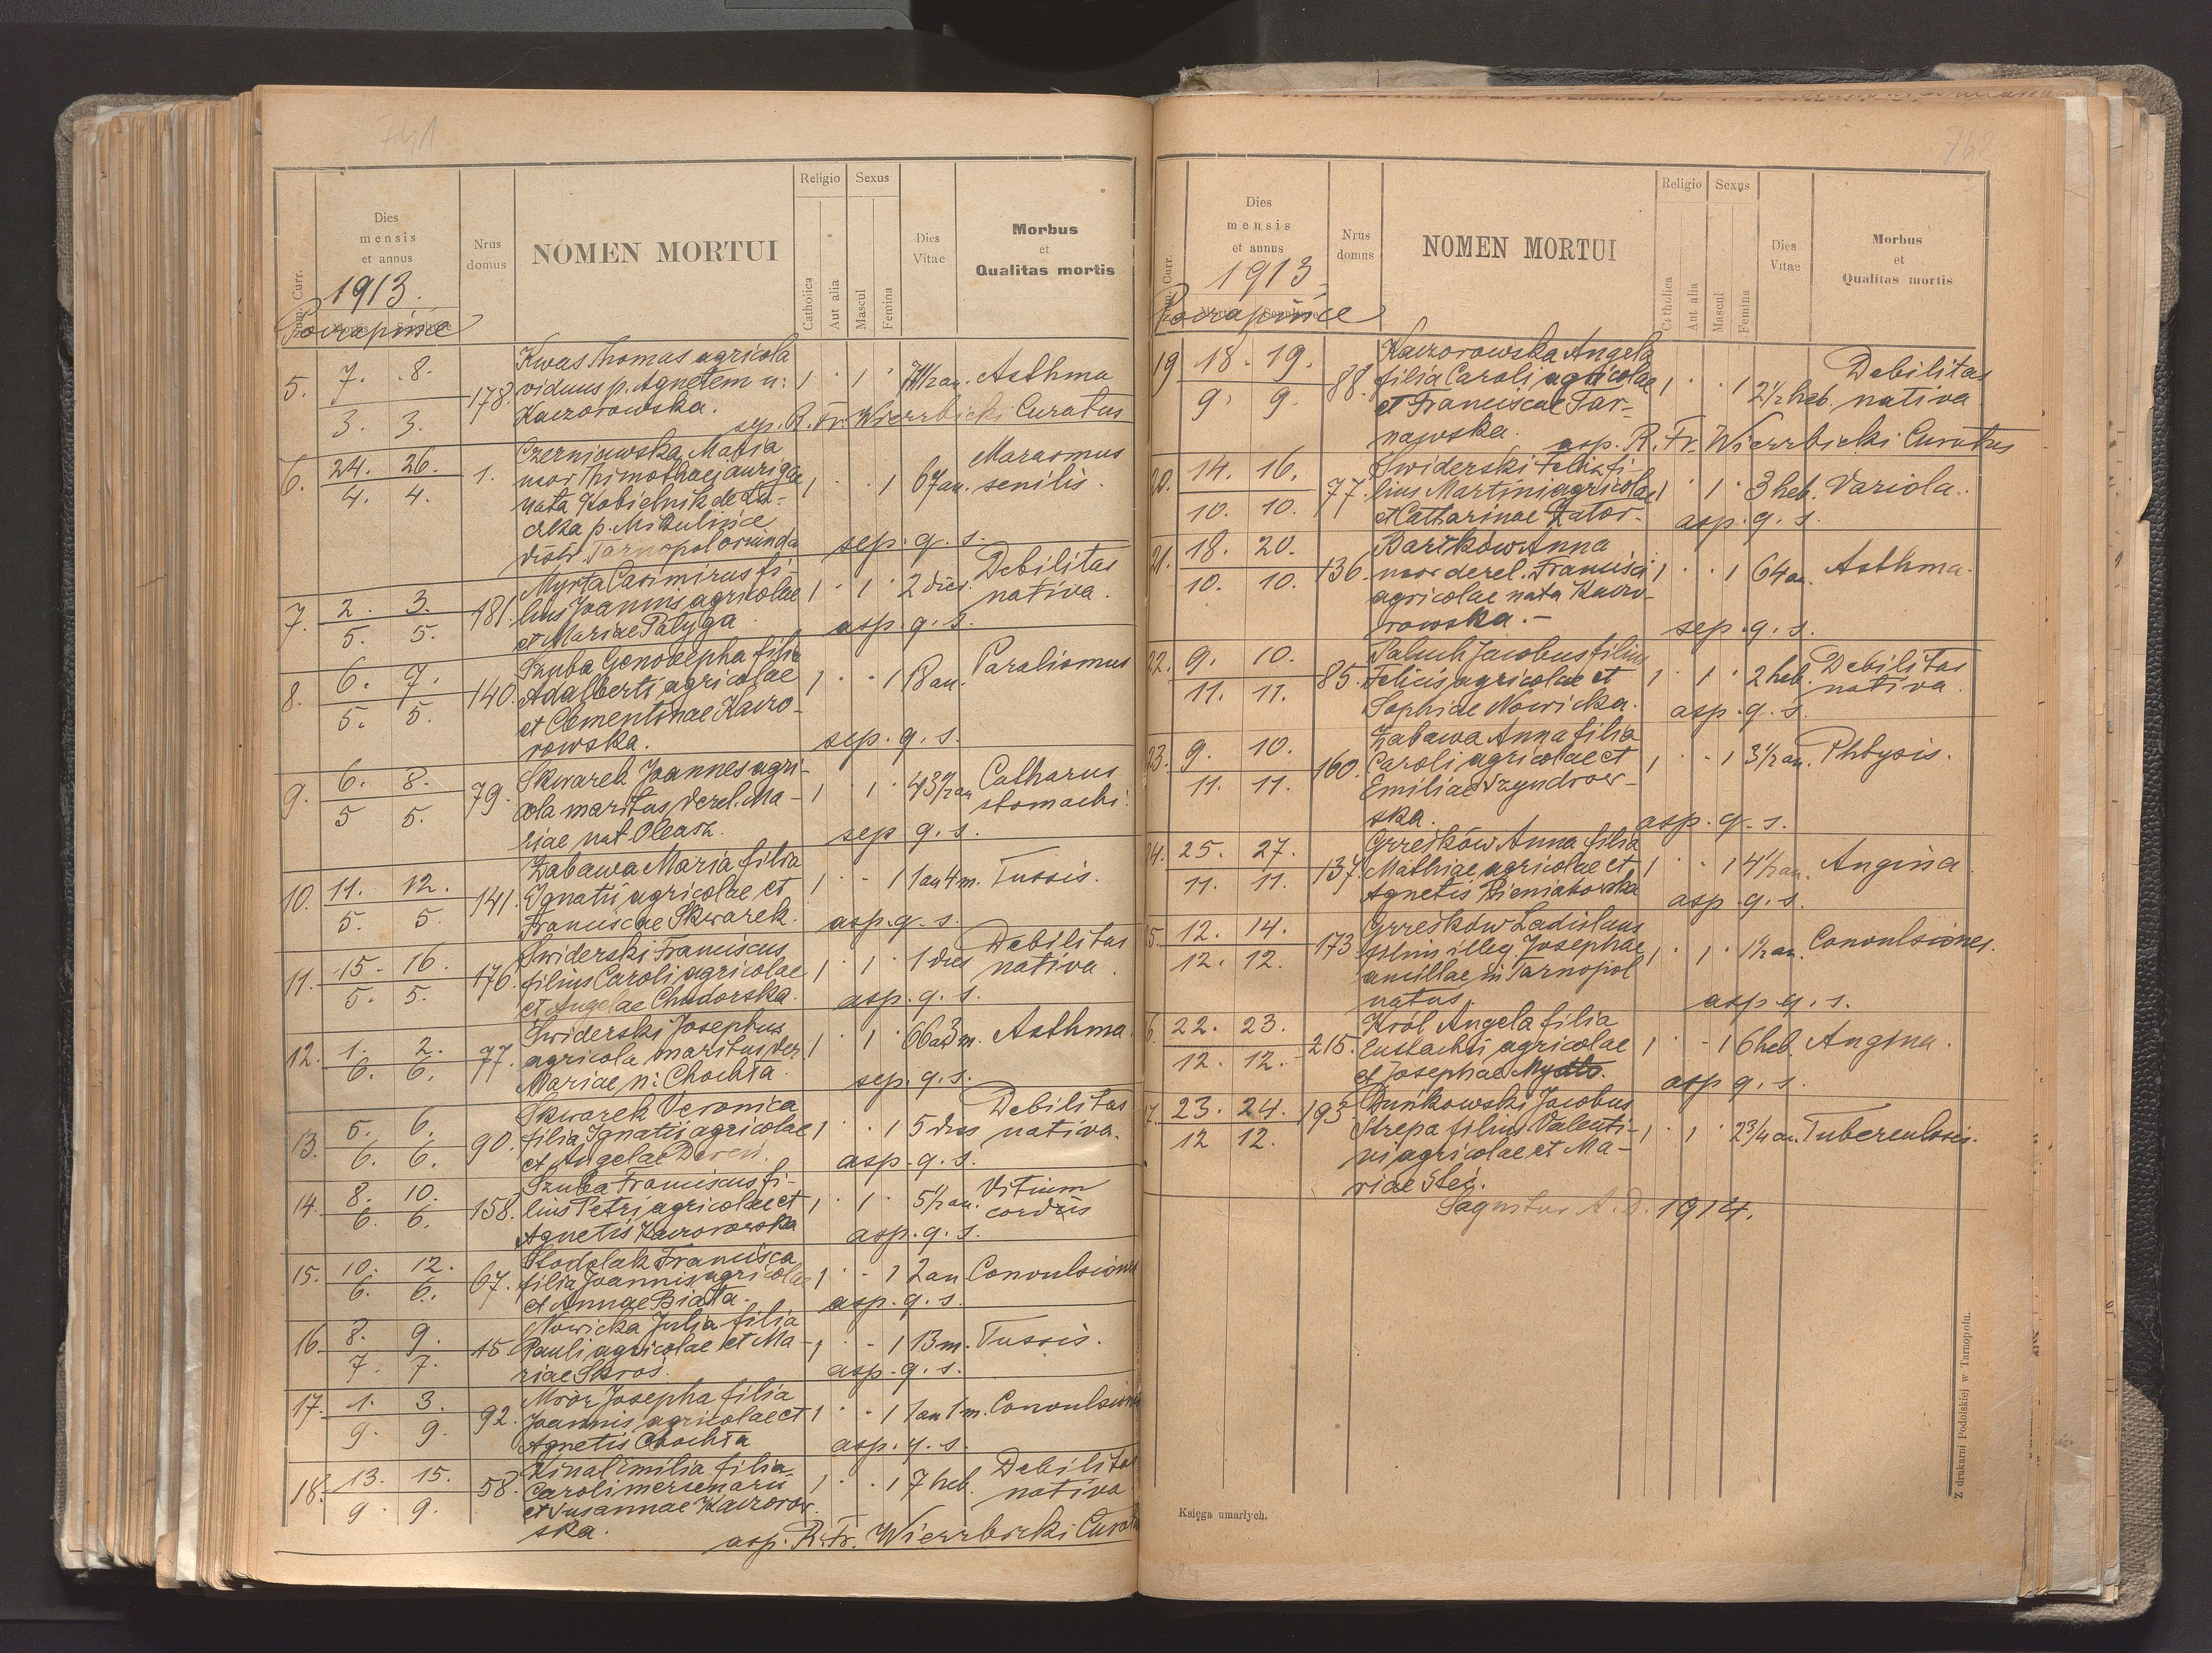 741
Num. Curr.
Dies
mensis
et annus
1913.
Poczapińce
Nrus
domus
NOMEN MORTUI
Religio
Sexus
Catholica
Aut alia
Mascul
Femina
Dies
Vitae
Morbus
et
Qualitas mortis
5. 7. 8. 3. 3. 178.
Kwas Thomas agricola
viduus p. Agnetem n:
Kaczorowska.
1 1 an. Asthma
sep. R. Fr. Wierzbicki Curatus
6. 24. 26. 4. 4. 1.
Czerniawska Maria
uxor Thimothaei aurigae
nata Kobielnik de
p. Mikulińce
distr. Tarnopol oriunda
1 1 67 an. Marasmus
senilis.
sep. q. s.
7. 2. 3. 5. 5. 181.
Myrta Casimirus fi-
lius Joannis agricolae
et Mariae Patyga
1 1 2 dies. Debilitas
nativa.
asp. q. s.
8. 6. 7. 5. 5. 140.
Szuba Genovepha filia
Adalberti agricolae
et Clementinae Kaczo-
rowska.
1 1 18 an. Paralismus
sep. q. s.
9. 6. 8. 5 5. 79.
Skwarek Joannes agri-
cola maritus derel. Ma-
riae nat. Oleasz.
1 1 43 1/2 an Catharus
stomachi.
sep q. s.
10. 11. 12. 5. 5. 141.
Zabawa Maria filia
Ignatii agricolae et
Franciscae Skwarek.
1 1 1 an 4 m. Tussis.
asp. q. s.
11. 15. 16. 5. 5. 176.
Swiderski Franciscus
filius Caroli agricolae
et Angelae Chudorska.
1 1 1 dies Debilitas
nativa.
asp. q. s.
12. 1. 2. 6. 6. 77.
Swiderski Josephus
agricola maritus der.
Mariae n: Chochła.
1 1 66 a 3 m. Asthma
sep. q. s.
13. 5. 6. 6. 6. 90.
Skwarek Veronica
filia Ignatii agricolae
et Angelae Dereń.
1 1 5 dies Debilitas
nativa.
asp. q. s.
14. 8. 10. 6. 6. 158.
Szuba Franciscus fi-
lius Petri agricolae et
Agnetis Kaczorowska
1 1 5 1/2 an. Vitium
cordis
asp. q. s.
15. 10. 12. 6. 6. 67.
Stodolak Francisca
filia Joannis agricolae
et Annae Biała.
1 1 2 an Convulsiones
asp. q. s.
16. 8. 9. 7. 7. 15
Nowicka Julia filia
Pauli agricolae et Ma-
riae Skroś.
1 1 13 m. Tussis.
asp. q. s.
17. 1. 3. 9. 9. 92.
Mróz Josepha filia
Joannis agricolae et
Agnetis Chochła
1 1 1 an 1 m. Convulsiones
asp. q. s.
18. 13. 15. 9. 9. 58.
Kinal Emilia filia
Caroli mercenarii
et Susannae Kaczorow-
ska.
1 1 7 heb. Debilitas
nativa
asp. R. Fr. Wierzbicki Curatus
Num. Curr.
Dies
mensis
et annus
1913
Poczapińce
Nrus
domus
NOMEN MORTUI
Religio
Sexus
Catholica
Aut alia
Mascul
Femina
Dies
Vitae
Morbus
et
Qualitas mortis
19 18. 19. 9. 9. 88.
Kaczorowska Angela
filia Caroli agricolae
et Franciscae Tar-
nawska.
1 1 2 1/2 heb. Debilitas
nativa
asp. R. Fr. Wierzbicki Curatus
20. 14. 16. 10. 10. 77.
Swiderski Felix fi-
lius Martini agricolae
et Catharinae Zator-
1 1 3 heb. Variola.
asp. q. s.
21. 18. 20. 10. 10. 136.
Bartków Anna
uxor derel. Francisci
agricolae nata Kaczo-
rowska.-
1 1 64 an. Asthma.
sep. q. s.
22. 9. 10. 11. 11. 85.
Paluch Jacobus filius
Felicis agricolae et
Sophiae Nowicka.
1 1 2 heb. Debilitas
nativa.
asp. q. s.
23. 9. 10. 11. 11. 160.
Zabawa Anna filia
Caroli agricolae et
Emiliae
ska.
1 1 3 1/2 an. Phtysis.
asp. q. s.
24. 25. 27. 11. 11. 137.
Grześków Anna filia
Mathiae agricolae et
Agnetis Pieniakowska
1 1 4 1/2 an. Angina.
asp q. s.
25. 12. 14. 12. 12. 173
Grześków Ladislaus
filius illeg. Josephae
ancillae in Tarnopol
natus.
1 1 1 1/2 an. Convulsiones.
asp q. s.
6 22. 23. 12. 12. 215.
Król Angela filia
Eustachii agricolae
et Josephae Mydło.
1 1 6 heb. Angina.
asp q. s.
7. 23. 24. 12 12. 193
Dunkowski Jacobus
Strepa filius Valenti-
ni agricolae et Ma-
riae Steć.
1 1 2 3/4 an. Tuberculosis.
Sequitur A. D. 1914.
Księga umarłych.
Z drukarni Podolskiej w Tarnopolu.